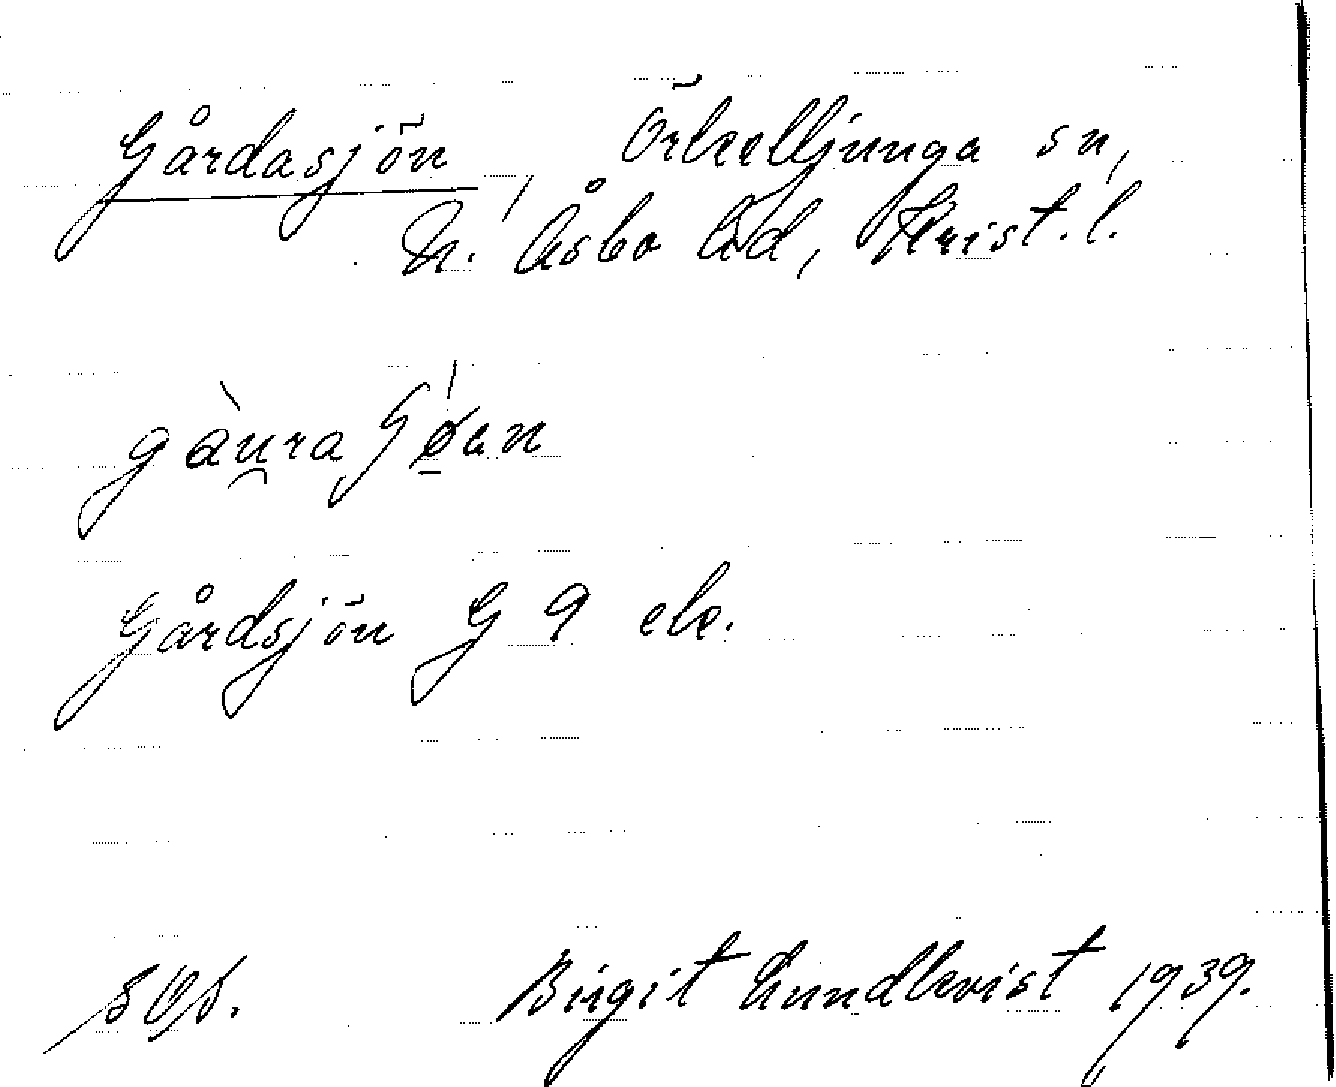 Gårdasjön, Örkelljunga sn,
N. Åsbo hd, Krist. l.
gàu̯raʃǿ̱an
Gårdsjön G 9 ek.
sos.
Birgit Lundkvist 1939.